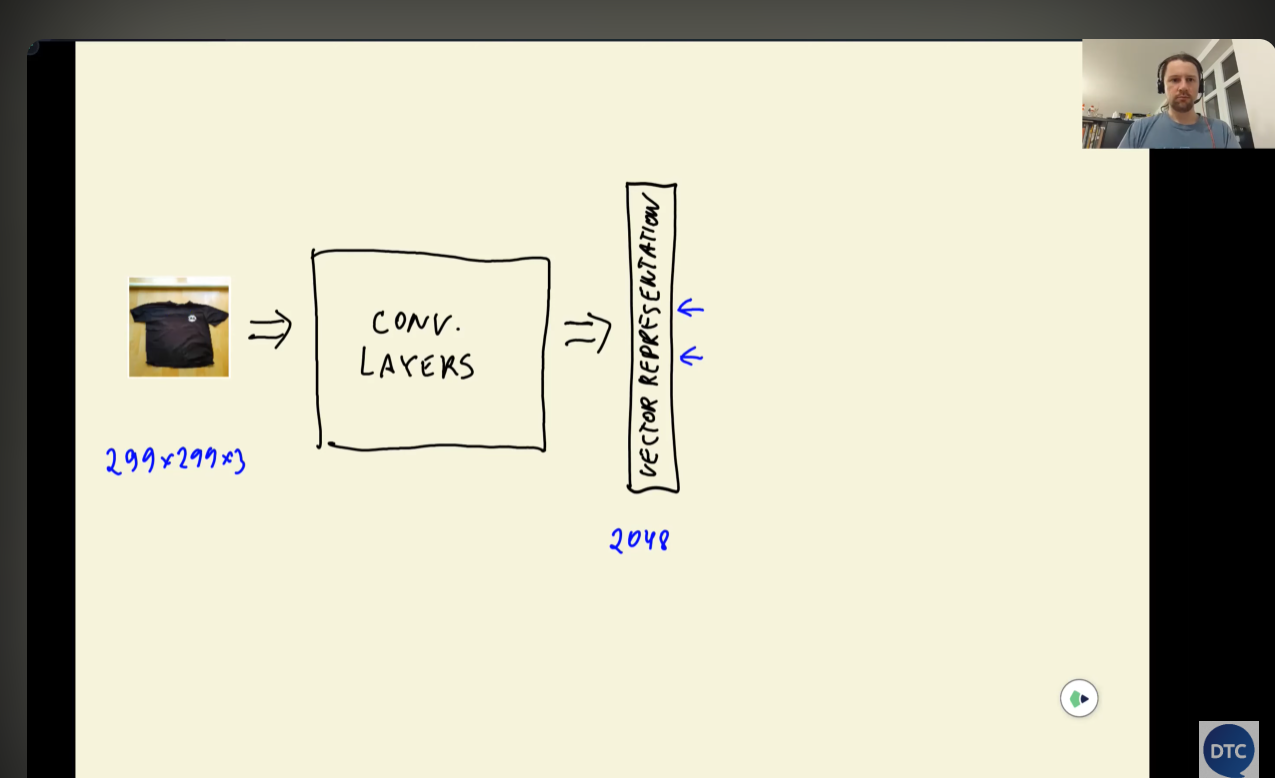 CONV.
LAYERS
VECTOR REPRESENTATION
299×299×3
2048
DTC